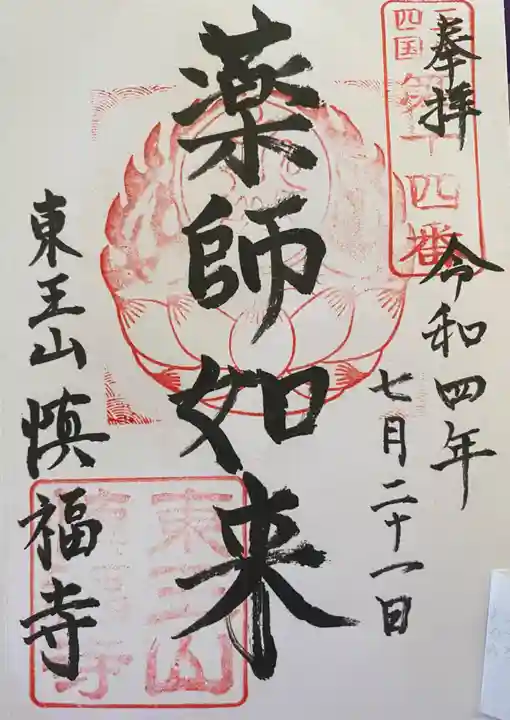 奉拝
令和四年
七月二十一日
薬師如来
東王山 慎福寺
四国
第十四番
東王山
慎福寺